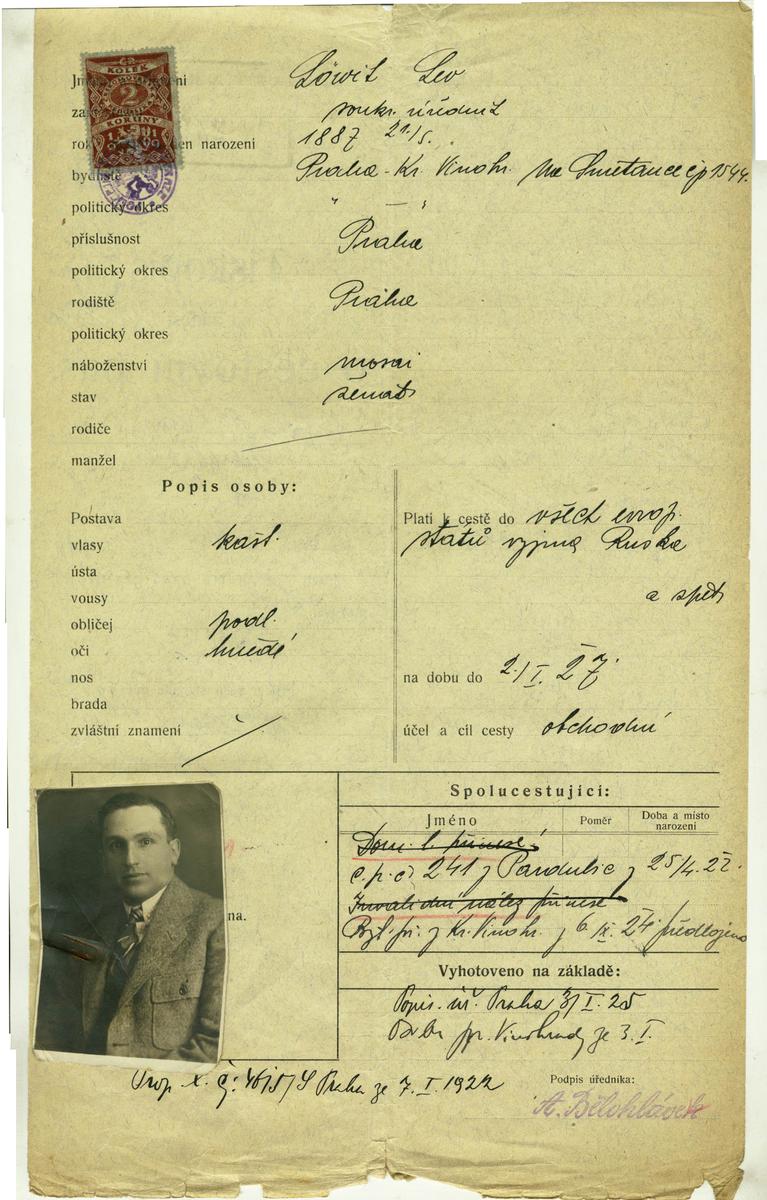 KOLEK
2
KORUNY
Löwit Lev
soukr. úředník
rok den narození 1887 21./5.
bydliště Praha - Kr. Vinohr. Na Smetance čp 1544.
politický okres " — "
příslušnost Praha
politický okres
rodiště Praha
politický okres
náboženství mosai
stav ženat
rodiče
manžel
Popis osoby:
Postava
vlasy kašt.
ústa
vousy
obličej podl.
oči hnědé
nos
brada
zvláštní znamení
Platí k cestě do všech evrop.
států vyjma Ruska
a zpět
na dobu do 2./I. 27.
účel a cíl cesty obchodní
na.
Spolucestující:
Jméno Poměr Doba a místo narození
Dom. l. přinesé
č. p. č. 241 z Pardubic z 25/4. 22.
Invalidní nález přinesé
Byt. př. z Kr. Vinohr. z 6. IX. 24 předloženo
Vyhotoveno na základě:
Popis. úř. Praha 3/I. 25
pp. Vinohrady ze 3. I.
č: 46/5/S Praha ze 7. I. 1922
Podpis úředníka:
A. Bělohlávek